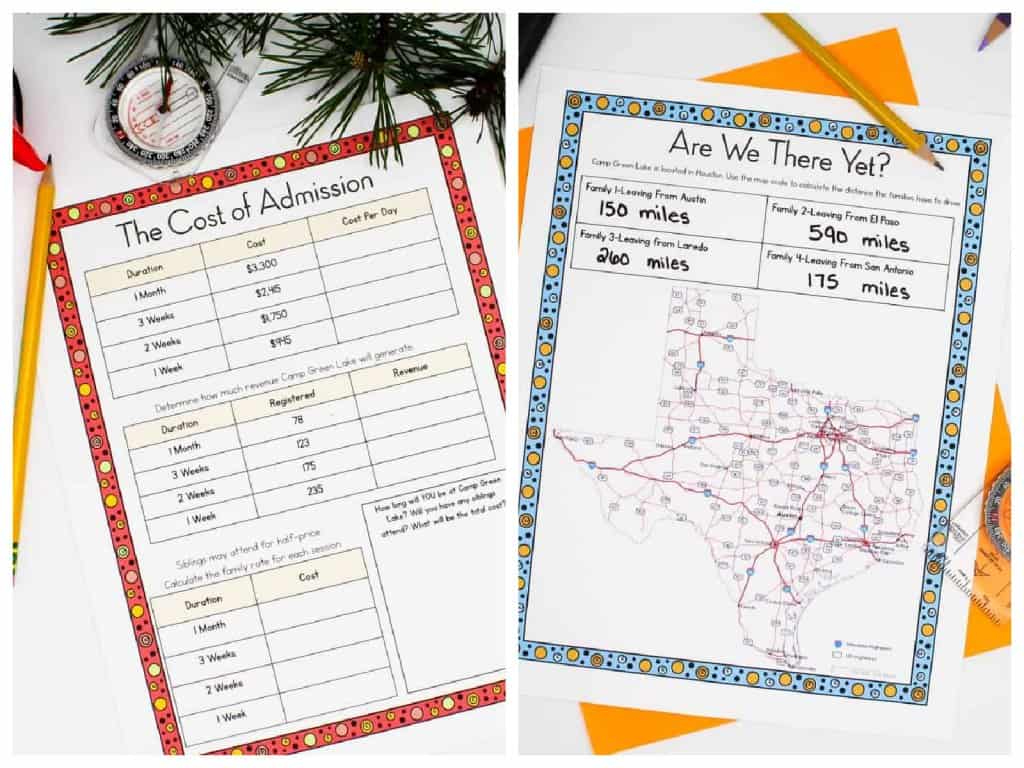 The Cost of Admission
Duration Cost Cost Per Day
1 Month $3,300
3 Weeks $2,415
2 Weeks $1,750
1 Week $945
Determine how much revenue Camp Green Lake will generate
Duration Registered Revenue
1 Month 78
3 Weeks 123
2 Weeks 175
1 Week 235
Siblings may attend for half-price
Calculate the family rate for each session
Duration Cost
1 Month
3 Weeks
2 Weeks
1 Week
How long will YOU be at Camp Green
Lake? Will you have any siblings
attend? What will be the total cost?
Are We There Yet?
Camp Green Lake is located in Houston. Use the map scale to calculate the distance the families have to drive
Family 1-Leaving From Austin
150 miles
Family 2-Leaving From El Paso
590 miles
Family 3-Leaving from Laredo
260 miles
Family 4-Leaving From San Antonio
175 miles
Austin